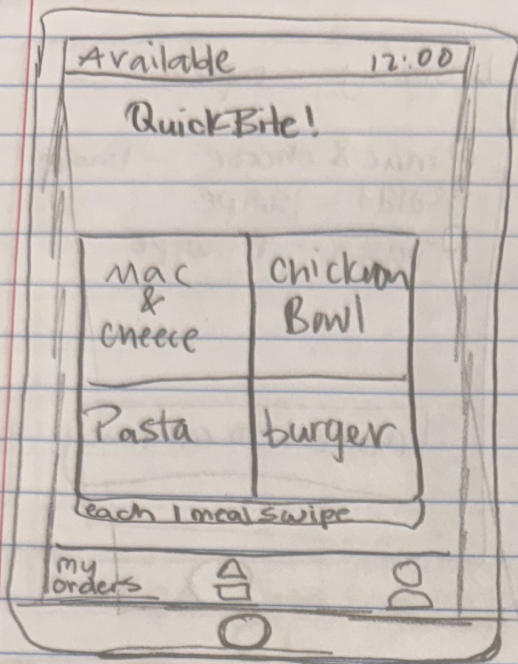 Available 12:00
QuickBite!
Mac
&
cheece
Chickoon
Bowl
Pasta
burger
each 1 meal swipe
my
orders